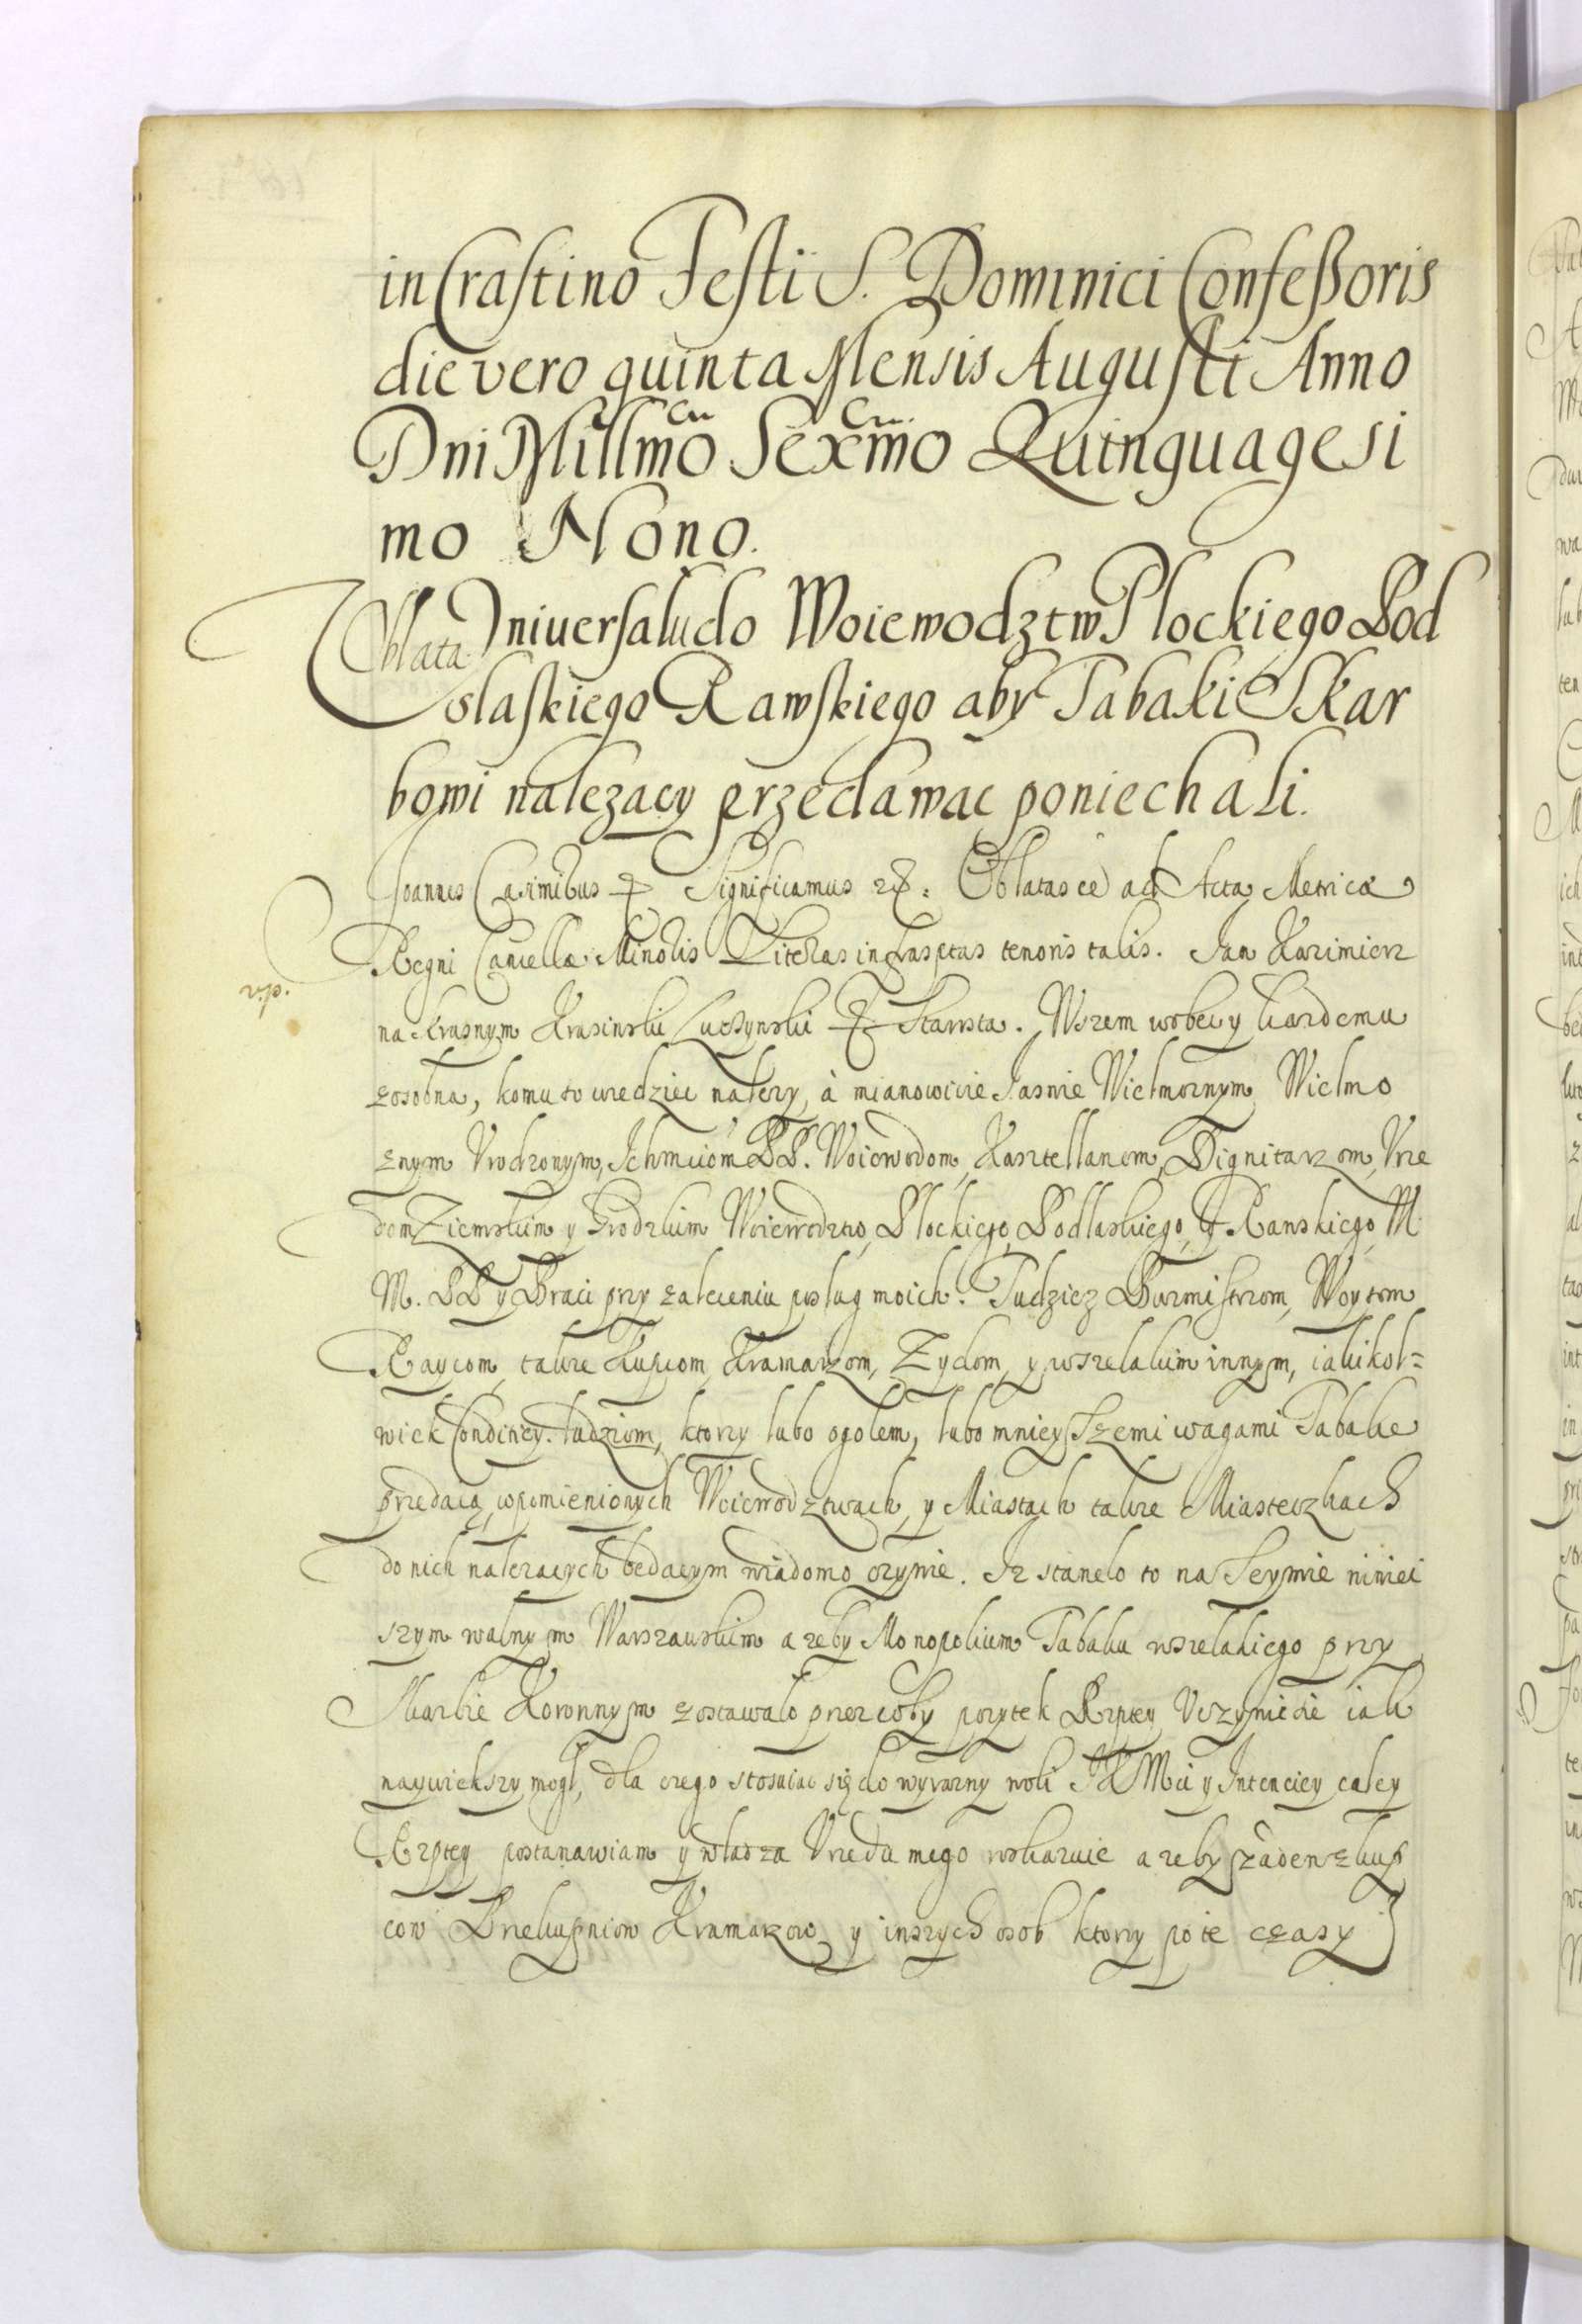 in Crastino Festi S. Dominici Confeßoris
die vero quinta Mensis Augusti Anno
Dni Millmo Sexcmo Quinquagesi
mo Nono.
Oblata Uniuersalu do Woiewodztw Plockiego Pod
slaskiego Rawskiego aby Tabaki Skar
bowi nalezacy przedawac poniechali.
Joannes Casimirus Significamus Oblatas ee ad Acta Metricæ
Regni Cancellæ Minoris Literas infrasptas tenoris talis. Jan Kazimierz
na Krasnym Krasinski Starosta. Wszem wobec y kazdemu
zosobna, komu to wiedziec nalezy, à mianowicie Jasnie Wielmoznym Wielmo
znym Vrodzonym, Ichmciom PP. Woiewodom, Kasztellanom, Dignitarzom, Vrze
dom Ziemskim y Grodzkim Woiewodztw, Plockiego, Podlaskiego, y Rawskiego, M.
M. PP y Braci przy zaleceniu poslug moich. Tudziez Burmistrzom, Woytom
Raycom, takze Kupcom, Kramarzom, Zydom, y wszelakim innym, iakikol=
wiek Condiciey ludziom, ktorzy lubo ogolem, lubo mnieyszemi wagami Tabake
przedaią, wpomienionych Woiewodztwach, y Miastach takze Miasteczkach
do nich nalezacych bedacym wiadomo czynie. Iz stanelo to na Seymie niniei
szym walnym Warszawskim azeby Monopolium Tabaku wszelakiego przy
Skarbie Koronnym zostawalo przez coby pozytek Rzptey Vczynicie iak
naywiekszy mogl, dla czego stosuiac się do wyrazny woli JKMci y Intenciey caley
Rzptey postanawiam y wladza Vrzedu mego wskazuie azeby zaden zkup
cow Przekupniow Kramarzow y inszych osob ktorzy po te czasy